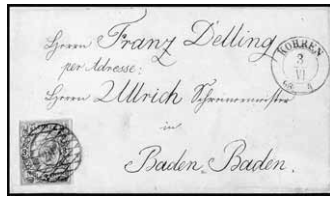 Herrn Franz Delling
per Adresse:
Herrn Ullrich Schreinermeister
in
Baden-Baden.
KOHREN
3
VI